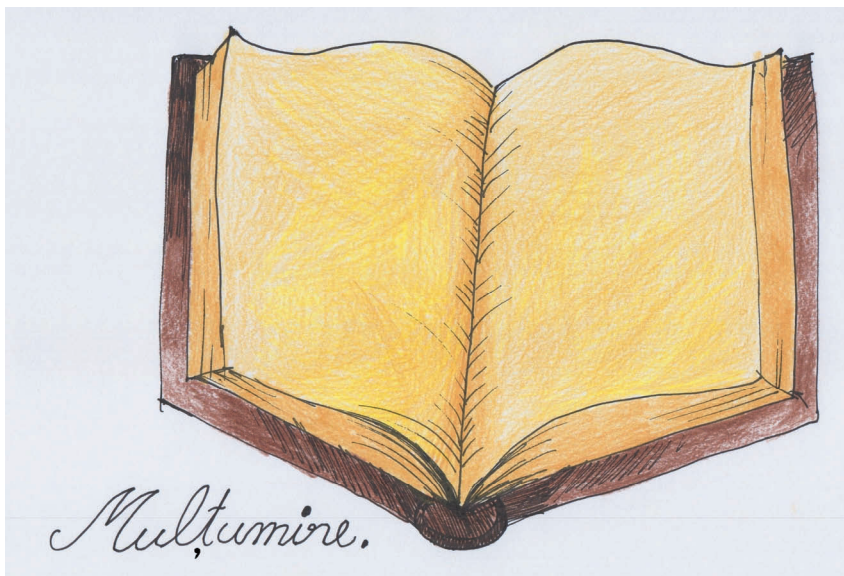 Mulțumire.